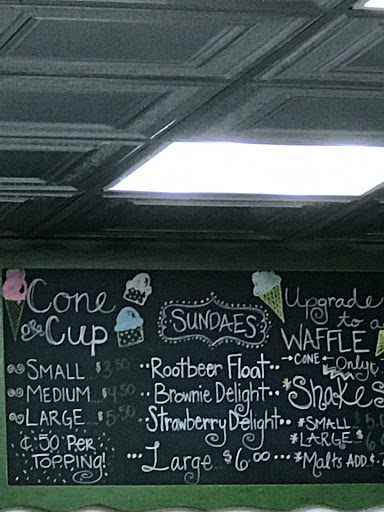 Cone
or Cup
SMALL $3.50
MEDIUM $4.50
LARGE $5.50
¢.50 Per
TOPPING!
SUNDAES
Rootbeer Float
Brownie Delight
Strawberry Delight
Large $6.00
Upgrade
to a
WAFFLE
CONE Only
Shakes
*SMALL
*LARGE
*Malts ADD